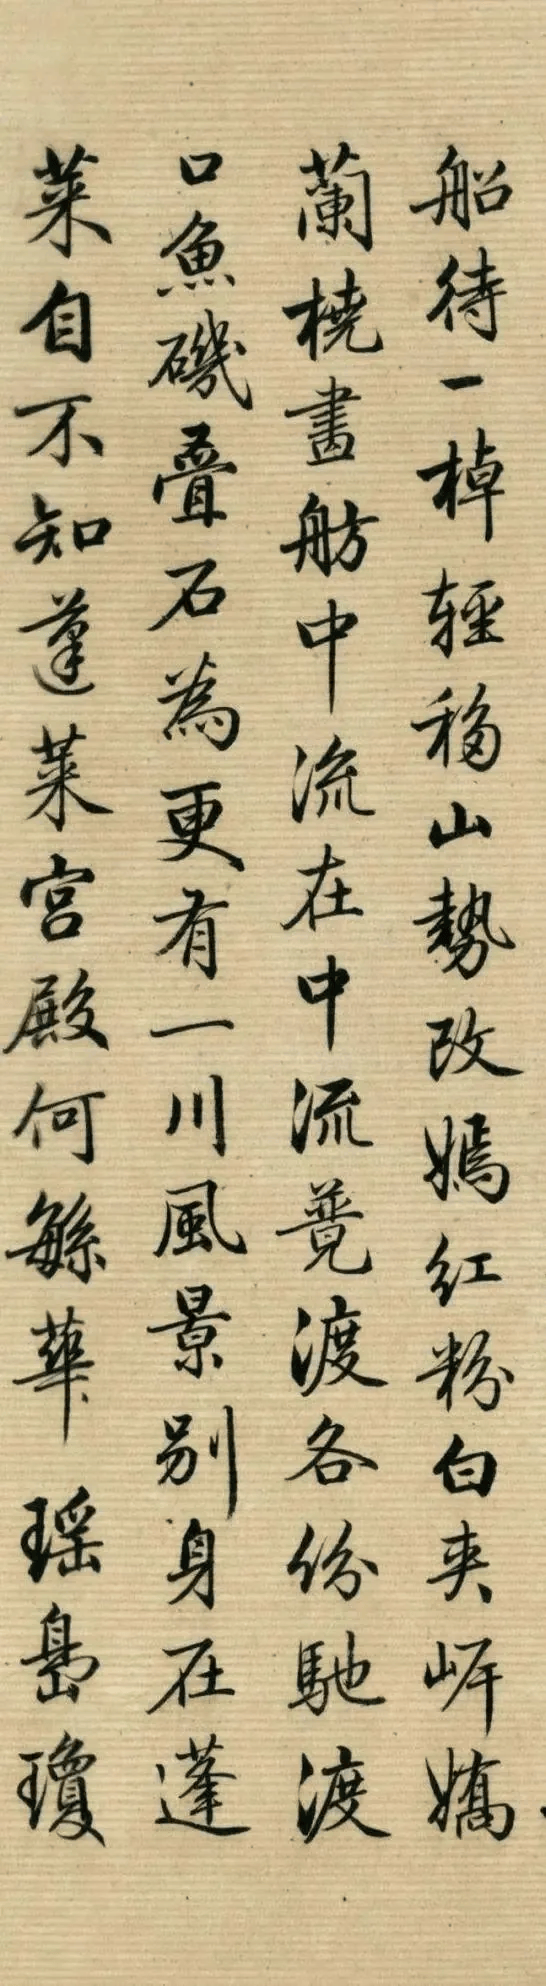 船待一棹輕移山勢改嫣紅粉白夾岸嬌
蘭橈畫舫中流在中流競渡各份馳渡
口魚磯疊石為更有一川風景別身在蓬
萊自不知蓬萊宮殿何繇華瑤島瓊